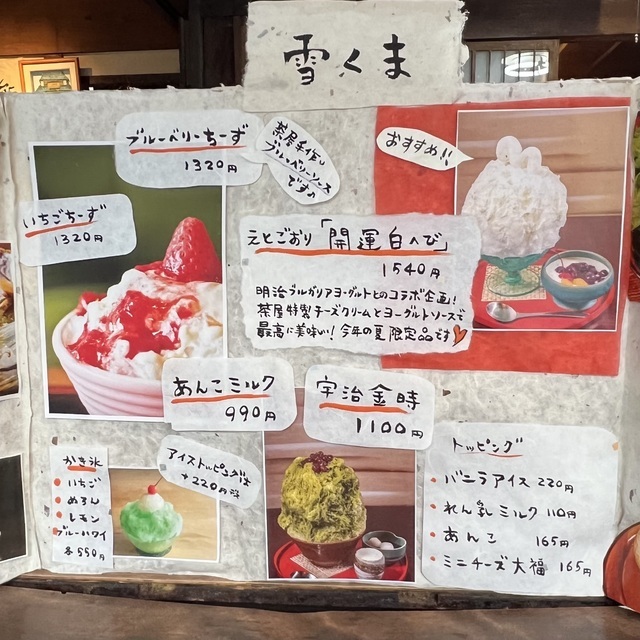 雪くま
ブルーベリーちーず
1320円
茶屋手作り
ブルーベリーソース
ですの
おすすめ!!
いちごちーず
1320円
えとごおり「開運白へび」
1540円
明治ブルガリアヨーグルトとのコラボ企画!
茶屋特製チーズクリームとヨーグルトソースで
最高に美味い!今年の夏限定品です
あんこミルク
990円
宇治金時
1100円
かき氷
いちご
めろん
レモン
ブルーハワイ
各550円
アイストッピングは
+220円
トッピング
バニラアイス 220円
れん乳ミルク 110円
あんこ 165円
ミニチーズ大福 165円